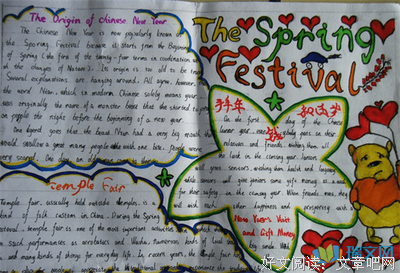 The Origin of Chinese New Year
The Chinese New Year is now popularly known as
the Spring Festival because it starts from the Beginning
of Spring (the first of the twenty-four terms in coordination with
the changes of Nature). Its origin is too old to be traced.
Several explanations are hanging around. All agree, however, that
the word Nian, which in modern Chinese solely means year
was originally the name of a monster beast that started to prey
on people the night before the beginning of a new year.
One legend goes that the beast Nian had a very big mouth that
would swallow a great many people with one bite. People were
very scared. One day, an old man came
The Spring
Festival
拜年
On the first day of the Chinese
lunar year
relatives and friends, wishing them all
the luck in the coming year. Juniors
will greet seniors, wishing them health and longevity
while seniors will give juniors some gift money as a wish
for their safety in the coming year. When friends meet, they
will wish each other happiness and prosperity with
New Year's Visit
and Gift Money
big smile
Temple Fair
Temple fair, usually held outside temples, is a
kind of folk custom in China. During the Spring
Festival, temple fair is one of the most important activities in which
such performances as acrobatics and Wushu, numerous kinds of local
and many kinds of things for everyday life. In recent years, the temple fair
好文阅读：文章吧网